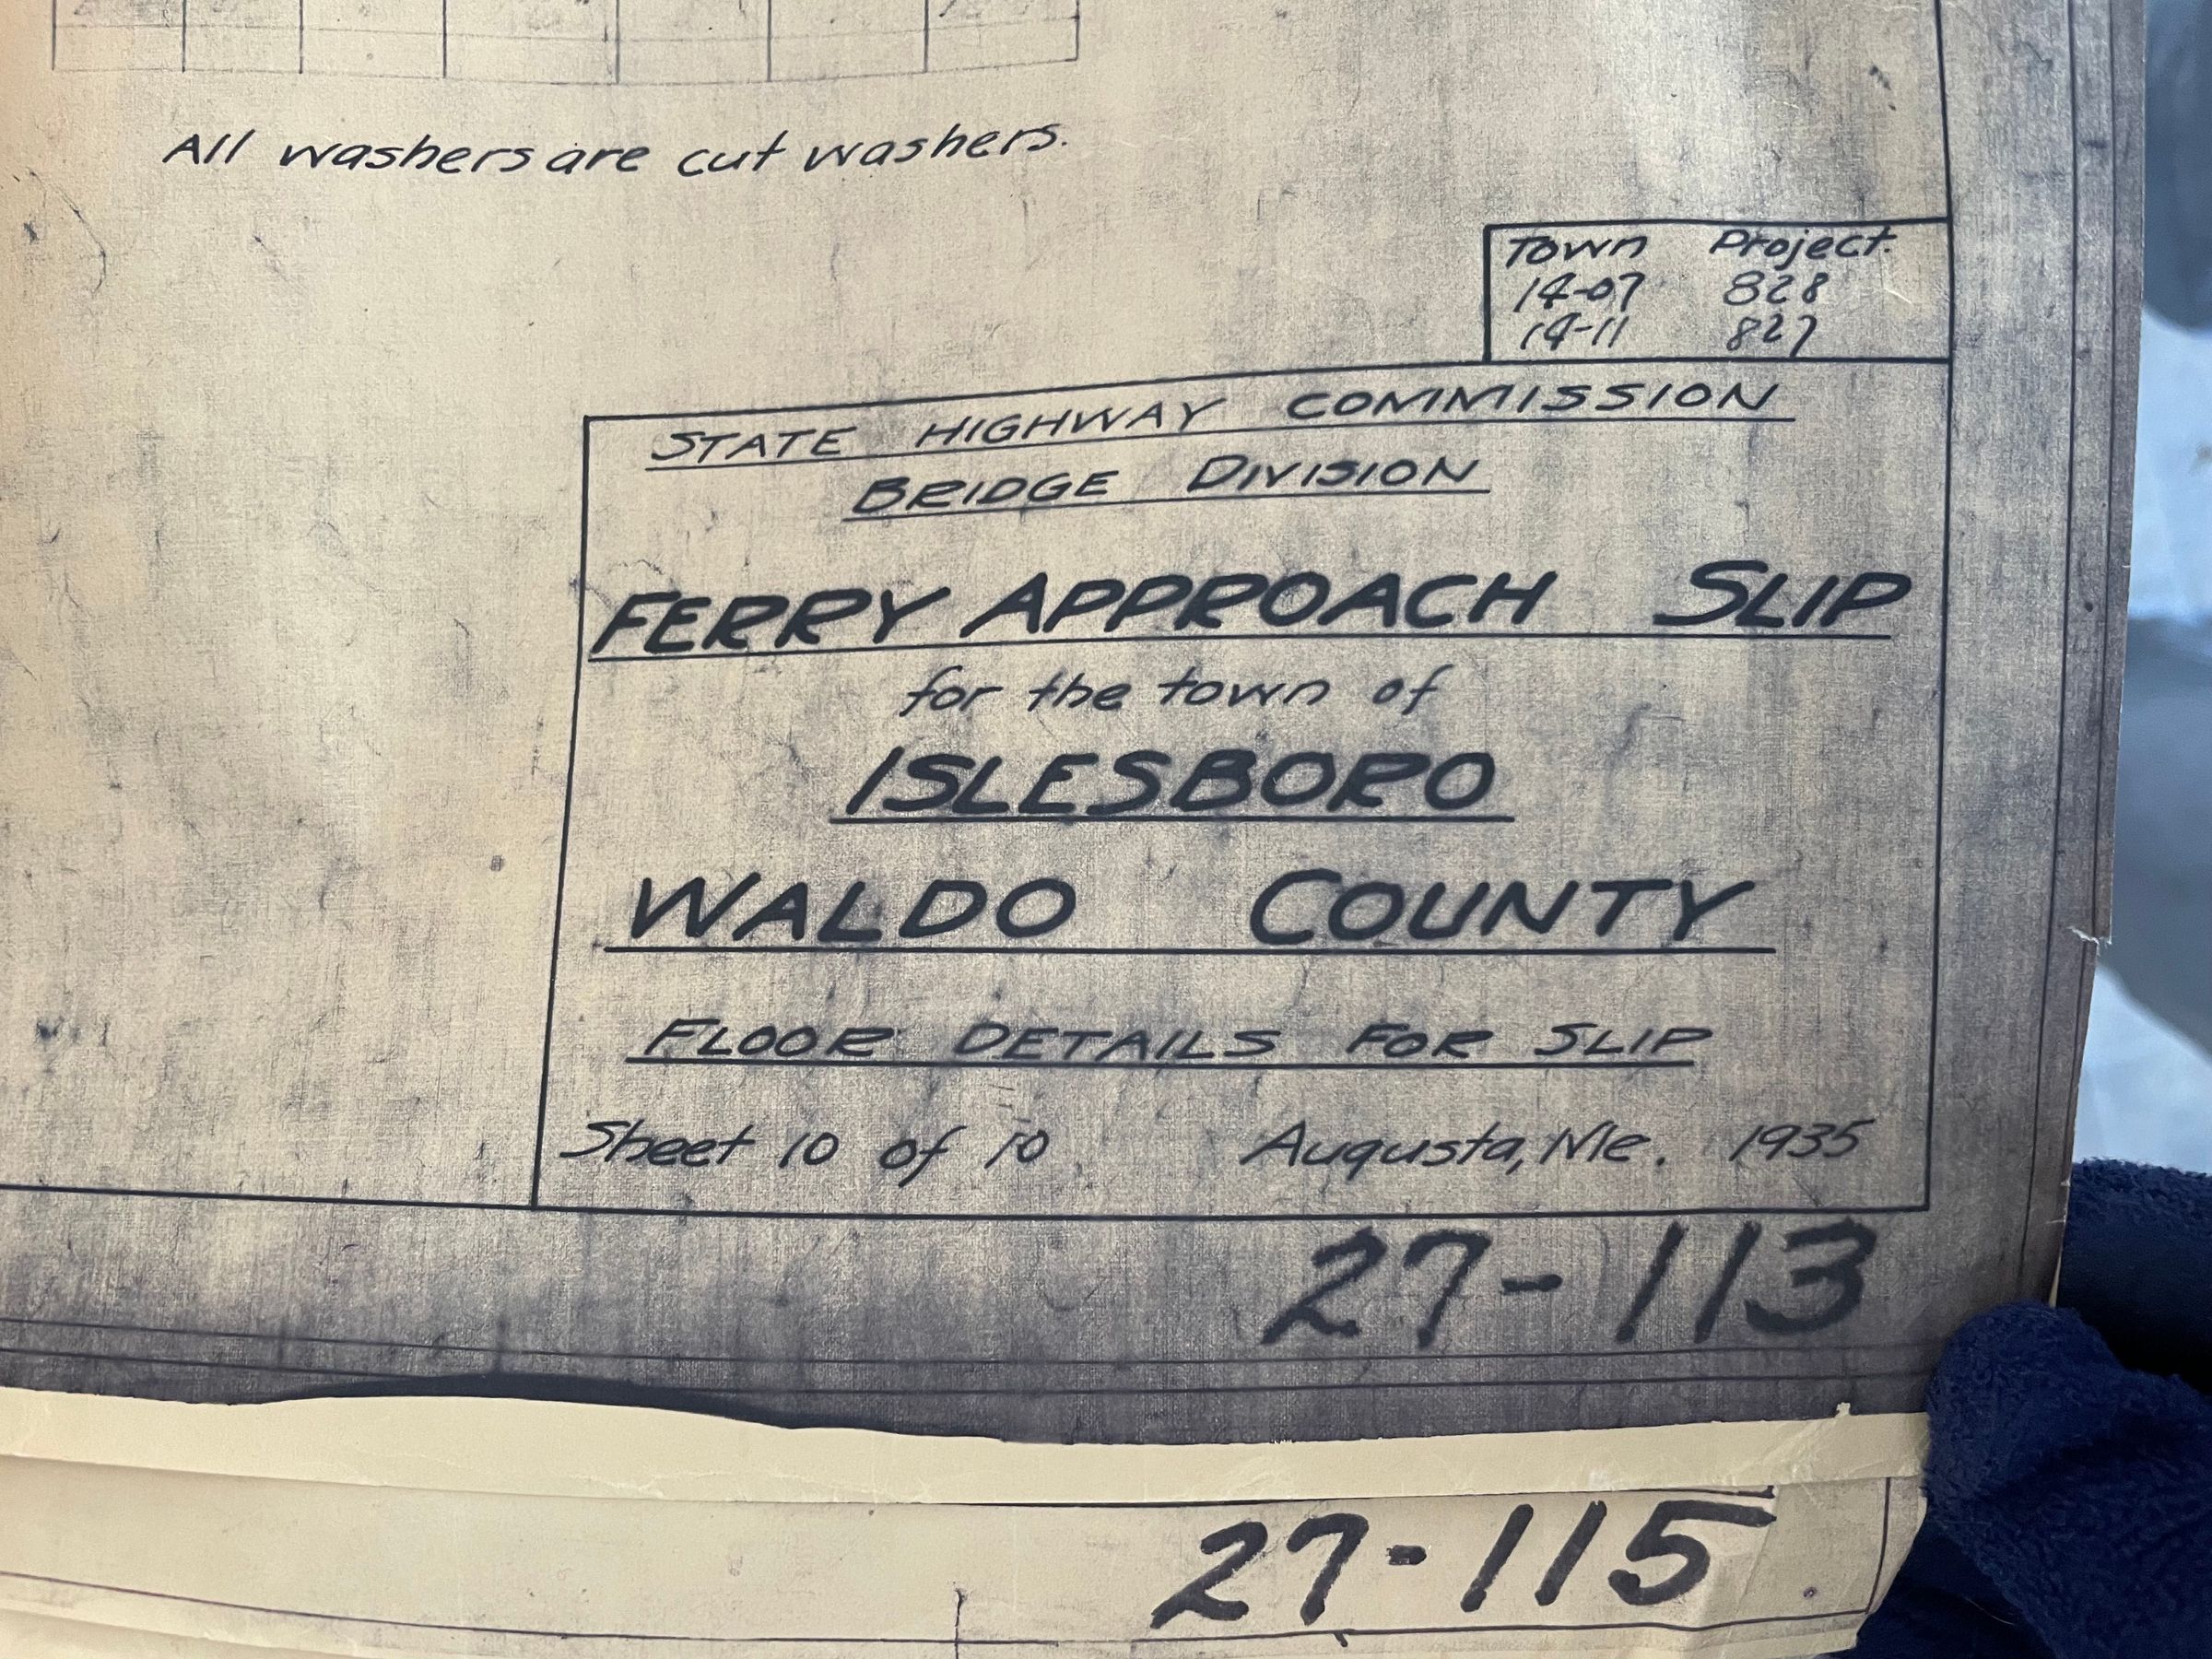 All washers are cut washers.
Town Project.
14-07 828
14-11 827
STATE HIGHWAY COMMISSION
BRIDGE DIVISION
FERRY APPROACH SLIP
for the town of
ISLESBORO
WALDO COUNTY
FLOOR DETAILS FOR SLIP
Sheet 10 of 10 Augusta, Me. 1935
27-113
27-115